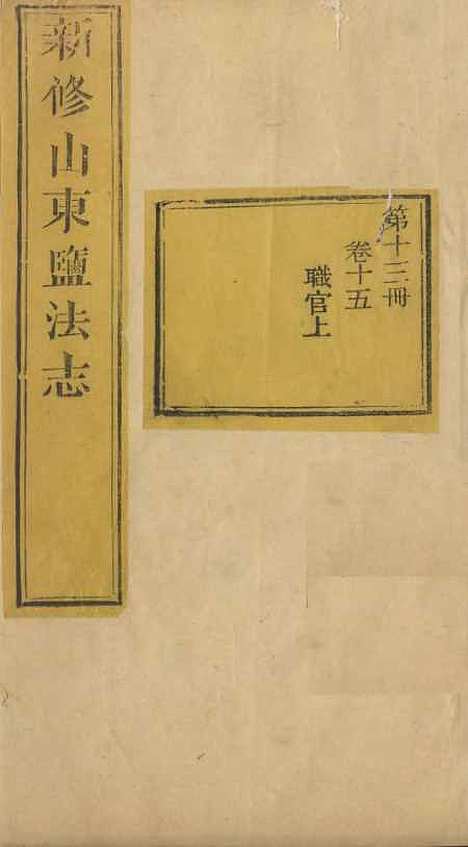 新修山東鹽法志
第十三冊
卷十五
職官上